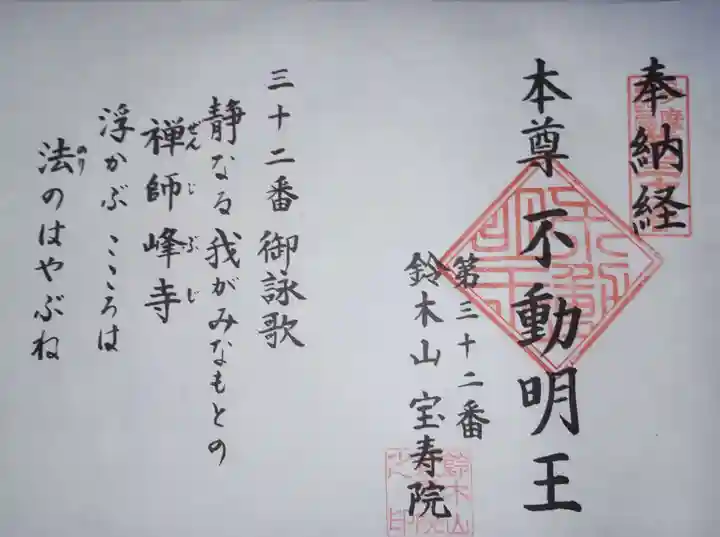 奉納経
本尊 不動明王
第三十二番
鈴木山 宝寿院
三十二番 御詠歌
静なる我がみなもとの
禅師峰寺
ぜんじぶじ
浮かぶこころは
法のはやぶね
のり
鈴木山